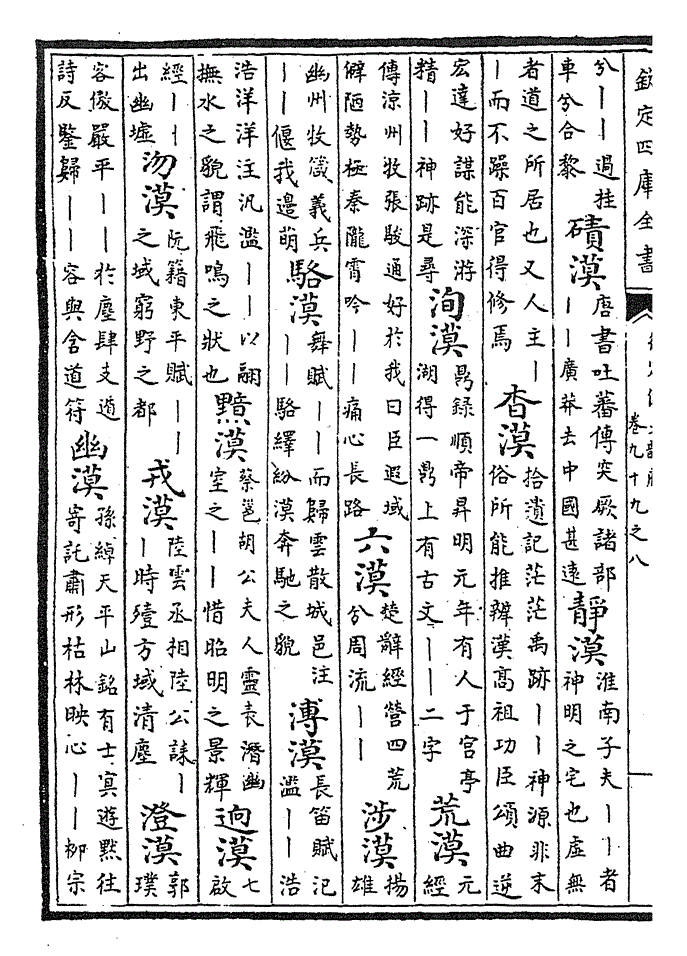 欽定四庫全書
卷九十九之八
兮丨丨過桂
車兮合黎
磧漠
唐書吐蕃傳突厥諸部
丨丨廣莽去中國甚遠
靜漠
淮南子夫丨丨者
神明之宅也虛無
者道之所居也又人主丨
丨而不躁百官得修焉
杳漠
拾遺記茫茫禹跡丨丨神源非末
俗所能推辨漢高祖功臣頌曲逆
宏達好謀能深游
精丨丨神跡是尋
洵漠
鼎錄順帝昇明元年有人于宮亭
湖得一鼎上有古文丨丨二字
荒漠
元
經
傳涼州牧張駿通好於我曰臣遐域
僻陋勢極秦隴霄吟丨丨痛心長路
六漠
楚辭經營四荒
兮周流丨丨
涉漠
揚
雄
幽州牧箴義兵
丨丨偃我邊萌
駱漠
舞賦丨丨而歸雲散城邑注
丨丨駱繹紛漠奔馳之貌
溥漠
長笛賦氾
濫丨丨浩
浩洋洋注汎濫丨丨以翮
撫水之貌謂飛鳴之狀也
黯漠
蔡邕胡公夫人靈表潛幽
室之丨丨惜昭明之景輝
迥漠
七
啟
經丨丨
出幽墟
沕漠
阮籍東平賦丨丨
之域窮野之都
戎漠
陸雲丞相陸公誄丨
丨時殪方域清塵
澄漠
郭
璞
客傲嚴平丨丨於塵肆支遁
詩反鑒歸丨丨容與含道符
幽漠
孫綽天平山銘有士冥遊默往
寄託肅形枯林映心丨丨柳宗